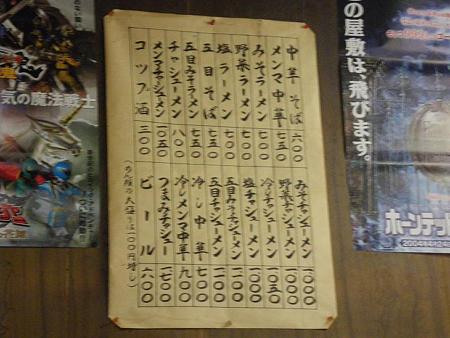 の屋敷は、飛びます。
ホーンテッド
2004年4月24
中華そば 六〇〇
メンマ中華 七五〇
みそラーメン 七〇〇
野菜ラーメン 七〇〇
塩ラーメン 七〇〇
五目そば 七五〇
五目みそラーメン 七五〇
チャシューメン 八〇〇
メンマチャシューメン 一〇五〇
コップ酒 三〇〇
みそチャシューメン 一〇〇〇
野菜チャシューメン 一〇〇〇
冷しチャシューメン 一〇五〇
塩チャシューメン 一〇〇〇
五目みそチャシューメン 一一〇〇
五目チャシューメン 一一〇〇
冷し中華 七〇〇
冷しメンマ中華 九〇〇
つまみチャシュー 七〇〇
ビール 六〇〇
(めん類の大盛りは一〇〇円増し)
気の魔法戦士